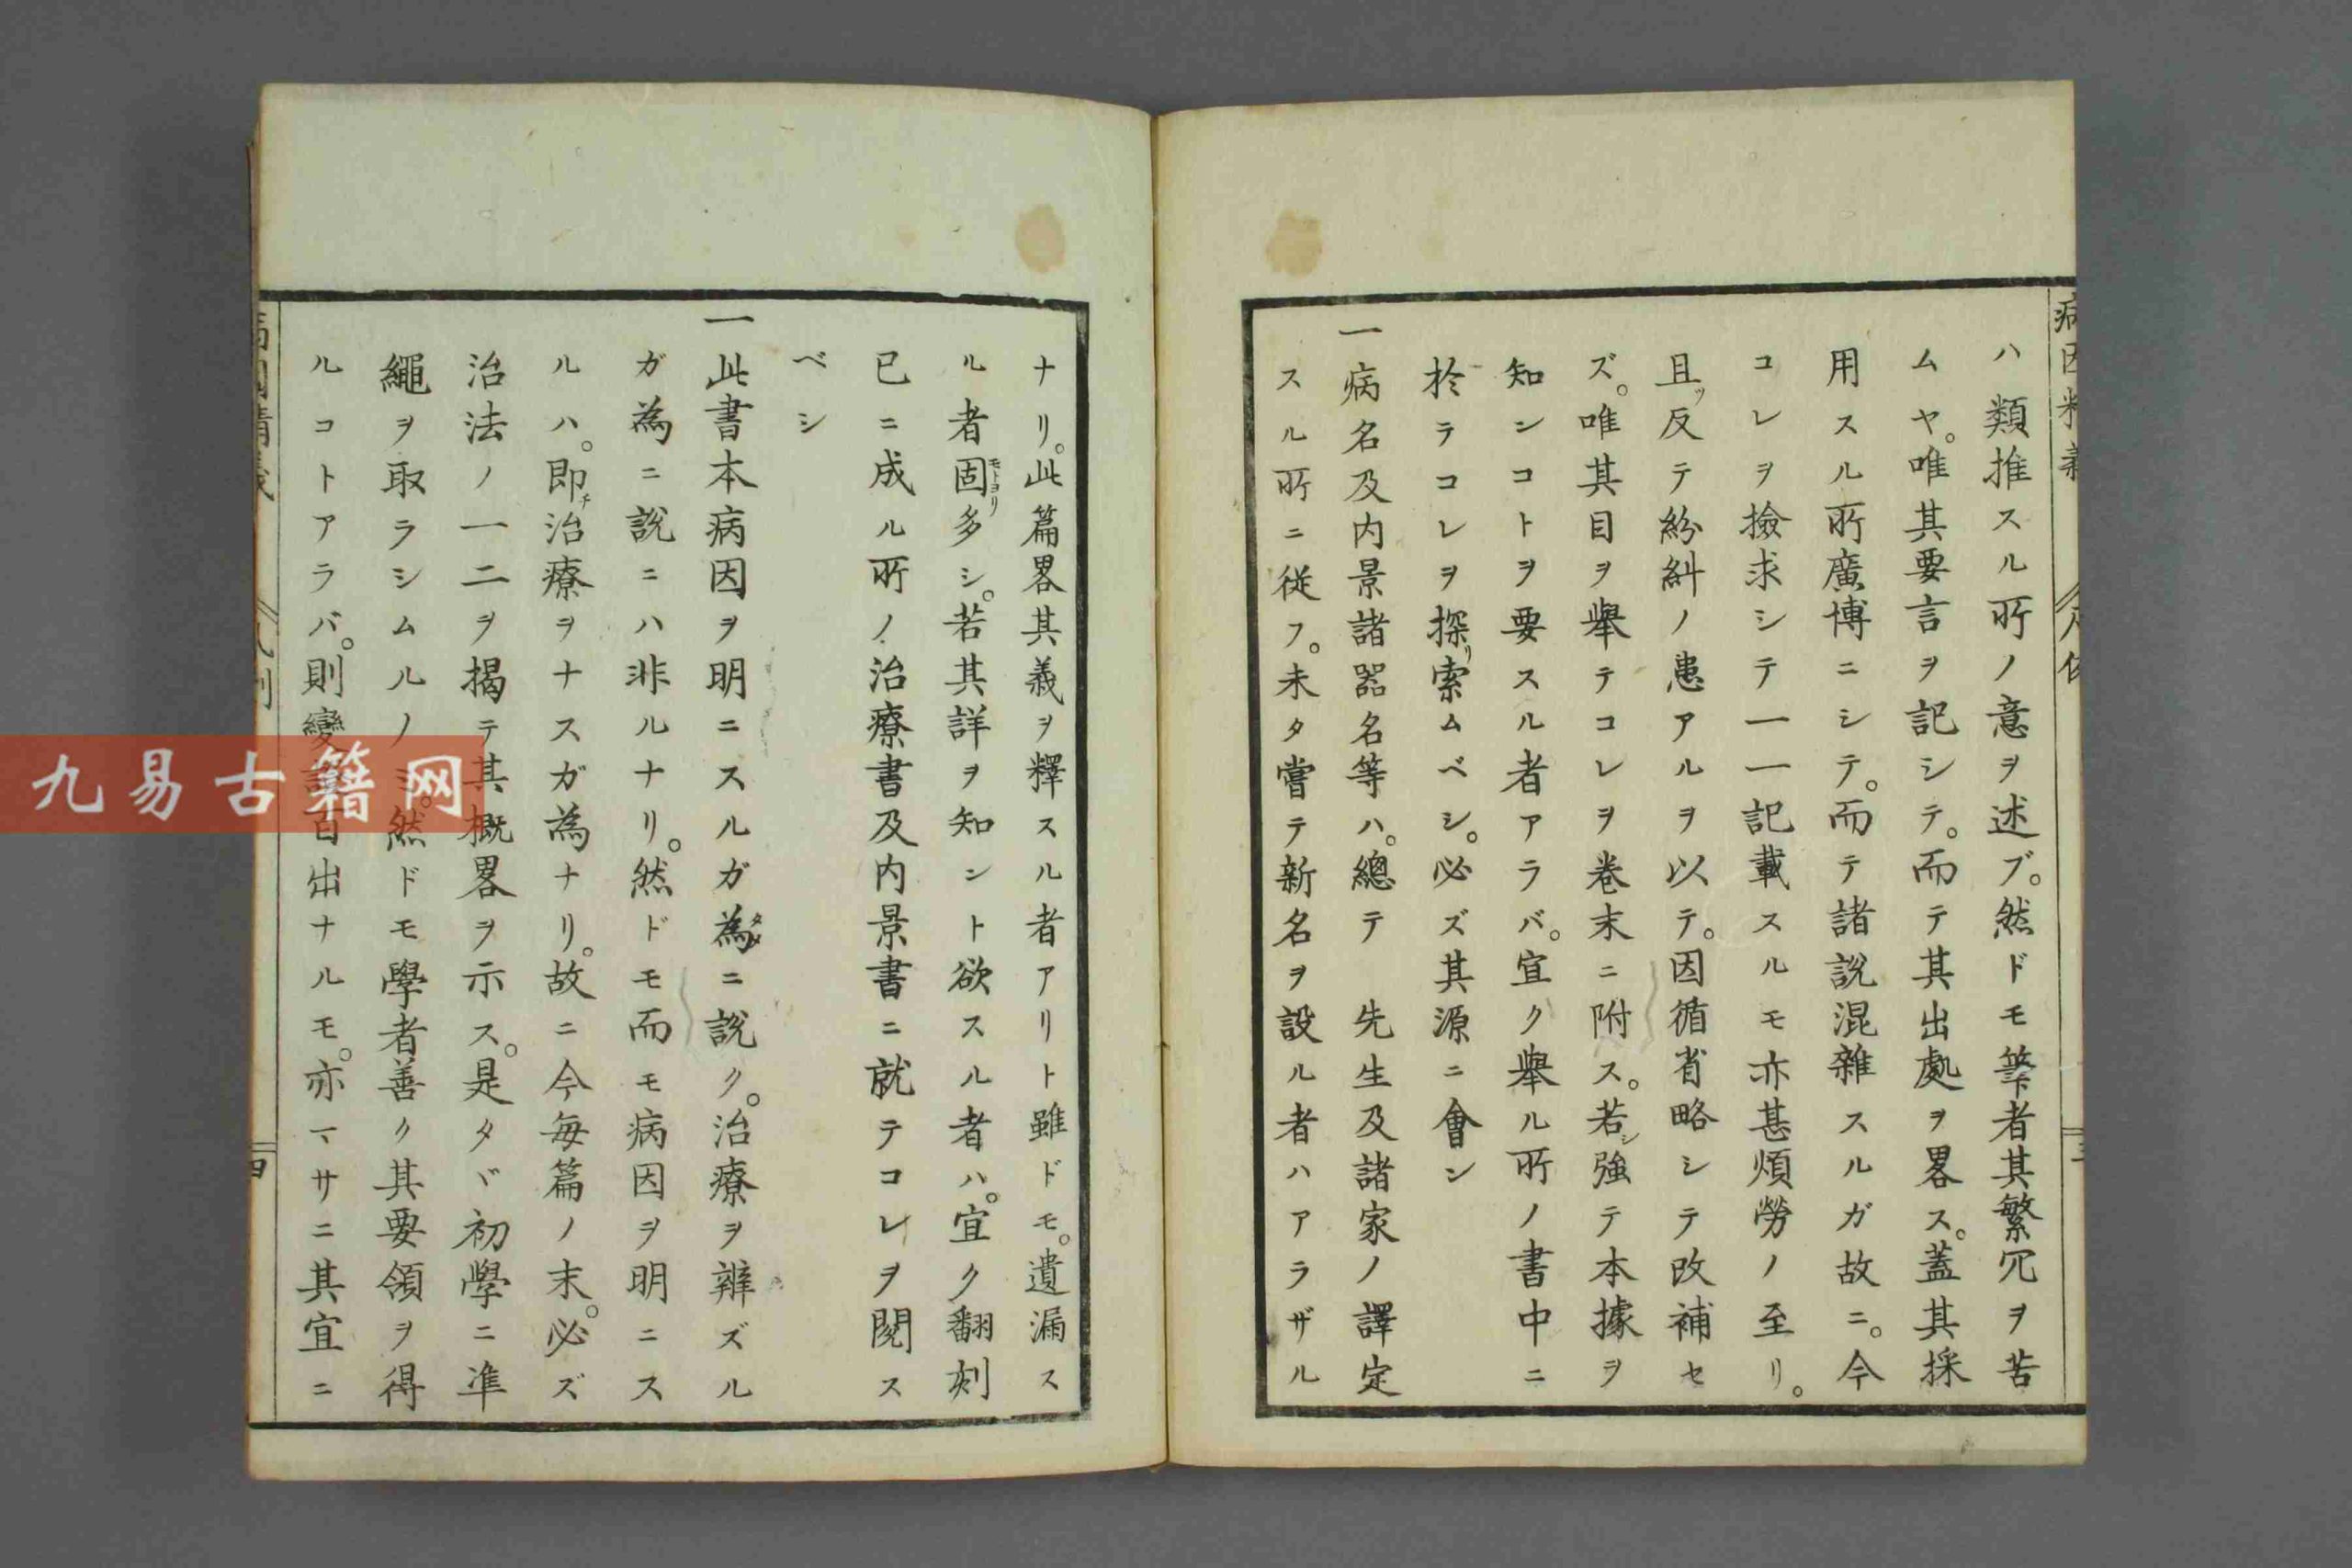 ハ類推スル所ノ意ヲ述ブ。然ドモ筆者其繁冗ヲ苦
ムヤ。唯其要言ヲ記シテ。而テ其出處ヲ畧ス。蓋其採
用スル所廣博ニシテ。而テ諸説混雜スルガ故ニ。今
コレヲ撿求シテ一一記載スルモ亦甚煩勞ノ至リ。
且ツ反テ紛糾ノ患アルヲ以テ。因循省略シテ改補セ
ズ。唯其目ヲ舉テコレヲ卷末ニ附ス。若シ強テ本據ヲ
知ンコトヲ要スル者アラバ。宜ク舉ル所ノ書中ニ
於テコレヲ探リ索ムベシ。必ズ其源ニ會ン
一病名及内景諸器名等ハ。總テ 先生及諸家ノ譯定
スル所ニ從フ。未タ嘗テ新名ヲ設ル者ハアラザル
ナリ。此篇畧其義ヲ釋スル者アリト雖ドモ。遺漏ス
ル者固モトヨリ多シ。若其詳ヲ知ント欲スル者ハ。宜ク翻刻
已ニ成ル所ノ治療書及内景書ニ就テコレヲ閲ス
ベシ
一此書本病因ヲ明ニスルガ為タメニ説ク。治療ヲ辨ズル
ガ為ニ説ニハ非ルナリ。然ドモ而モ病因ヲ明ニス
ルハ。即チ治療ヲナスガ為ナリ。故ニ今毎篇ノ末。必ズ
治法ノ一二ヲ揭テ其概畧ヲ示ス。是タヾ初學ニ準
繩ヲ取ラシムルノミ。然ドモ學者善ク其要領ヲ得
ルコトアラバ。則變百出ナルモ。亦マサニ其宜ニ
病因精義
凡例
四
九易古籍网